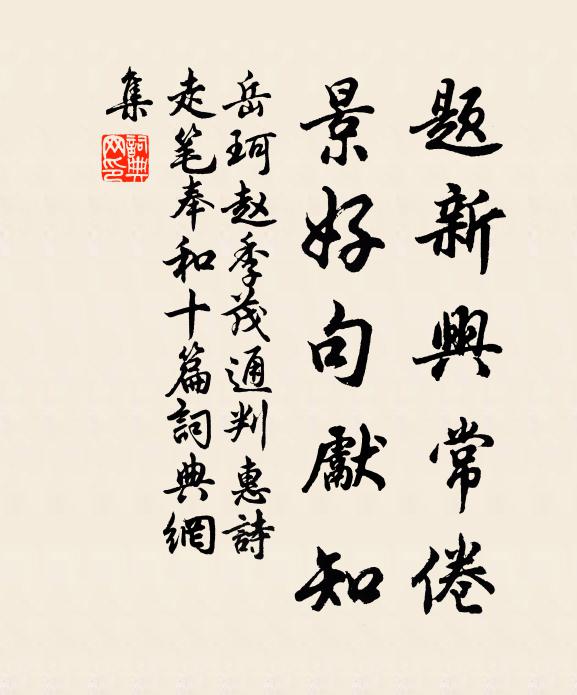 題新興常倦
景好句獻知
岳珂赵季茂通判惠詩
走笔奉和十篇詞典網
集
詞典网印